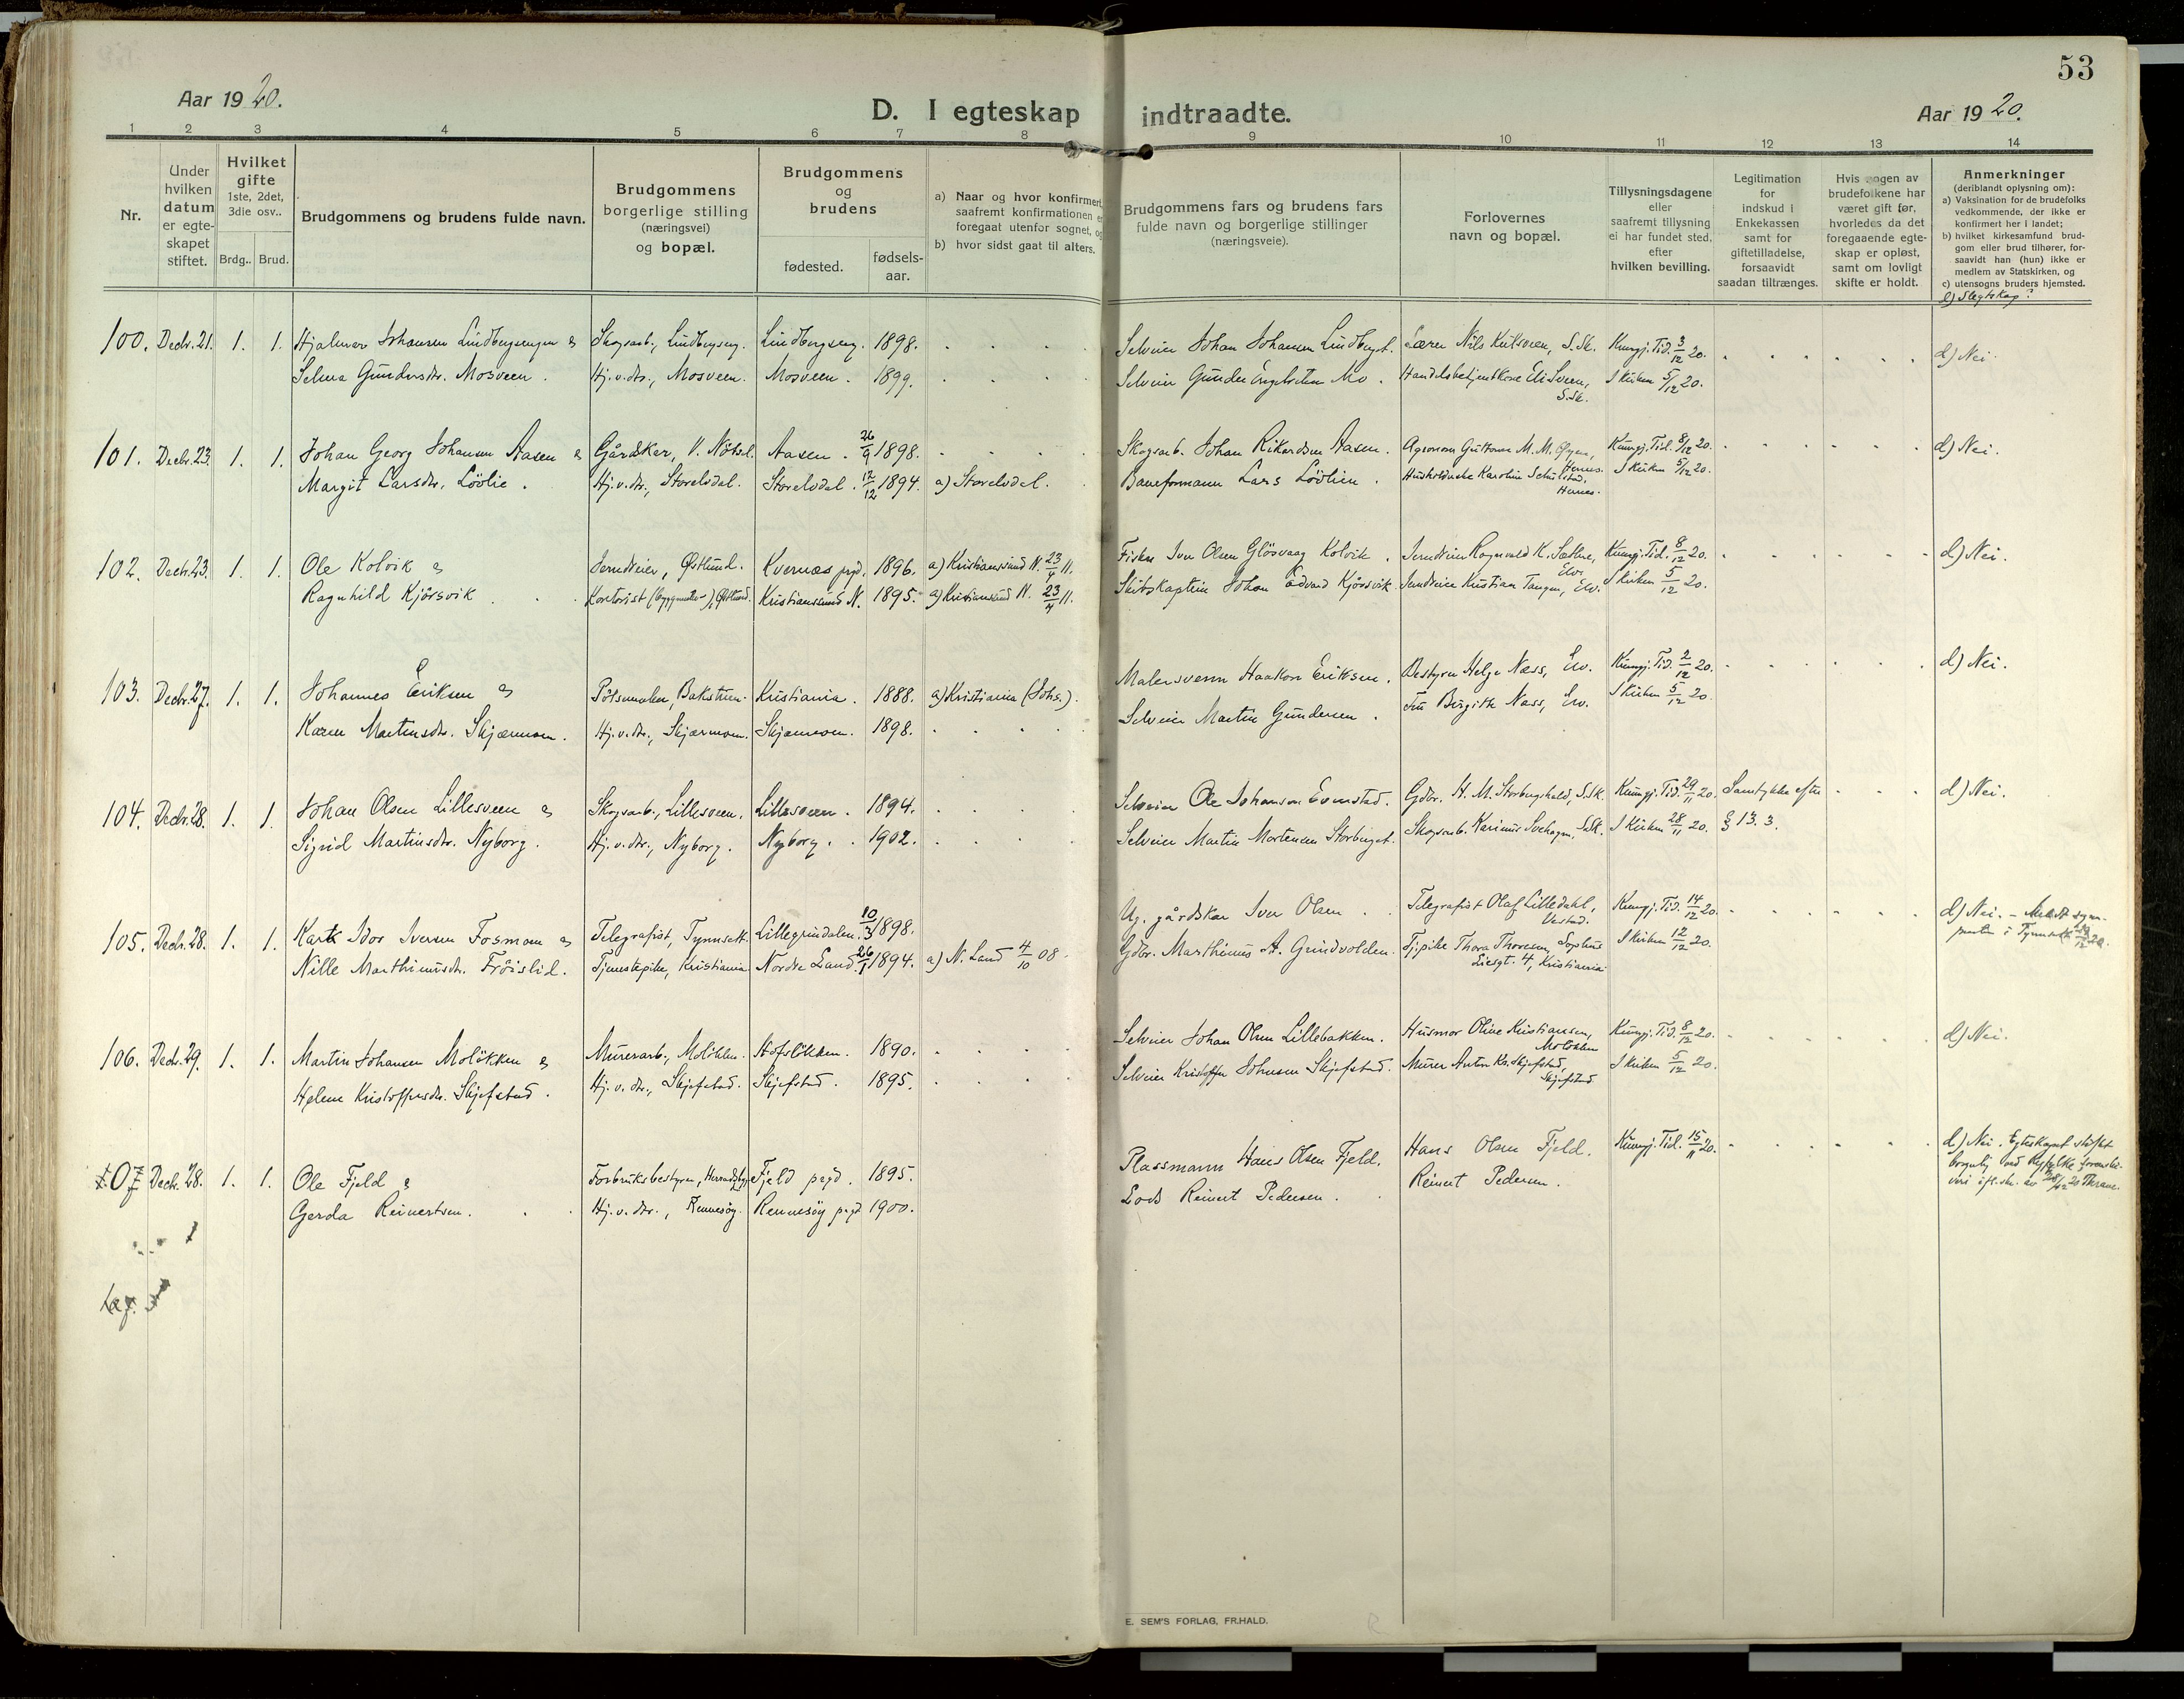 53
Aar 1920.
D. I egteskap indtraadte.
Aar 1920.
1 2 3 4 5 6 7 8 9 10 11 12 13 14
Nr.
Under
hvilken
datum
er egte-
skapet
stiftet.
Hvilket
gifte
1ste, 2det,
3die osv..
Brdg.. Brud.
Brudgommens og brudens fulde navn.
Brudgommens
borgerlige stilling
(næringsvei)
og bopæl.
Brudgommens
og
brudens
fødested.
fødsels-
aar.
a) Naar og hvor konfirmert,
saafremt konfirmationen er
foregaat utenfor sognet, og
b) hvor sidst gaat til alters.
Brudgommens fars og brudens fars
fulde navn og borgerlige stillinger
(næringsveie).
Forlovernes
navn og bopæl.
Tillysningsdagene
eller
saafremt tillysning
ei har fundet sted,
efter
hvilken bevilling.
Legitimation
for
indskud i
Enkekassen
samt for
giftetilladelse,
forsaavidt
saadan tiltrænges.
Hvis nogen av
brudefolkene har
været gift før,
hvorledes da det
foregaaende egte-
skap er opløst,
samt om lovligt
skifte er holdt.
Anmerkninger
(deriblandt oplysning om):
a) Vaksination for de brudefolks
vedkommende, der ikke er
konfirmert her i landet;
b) hvilket kirkesamfund brud-
gom eller brud tilhører, for-
saavidt han (hun) ikke er
medlem av Statskirken, og
c) utensogns bruders hjemsted.
d) Slegtskap?
100. Decbr. 21. 1. 1. Hjalmar Johansen Lindbergsengen & Skogsarb., Lindbergseng. Lindbergseng. 1898. Selveier Johan Johansen Lindberget. Lærer Nils Kulsveen, S.Sk. Kungj. Tid. 3/12 20. d) Nei.
Selma Gundersdtr. Mosveen. Hj.v.dtr., Mosveen. Mosveen. 1899. Selveier Gunder Engebretsen Mo. Handelsbetjent Eli Sveen, S.Sk. I kirken 5/12 20.
101. Decbr. 23. 1. 1. Johan Georg Johansen Aasen & Gårdsker, V. Nötsel. Aasen. 26/9 1898. Skogsarb. Johan Rikardsen Aasen. Agronom Guttorm M. M. Hernes. Kungj. Tid. 8/12 20. d) Nei.
Margit Larsdtr. Lövlie. Hj.v.dtr., Storelvdal. Storelvdal. 12/12 1894. a) Storelvdal. Baneformann Lars Lövlien. Husholderske Karoline Schulstad, Hernes. I kirken 5/12 20.
102. Decbr. 23. 1. 1. Ole Kolvik & Jerndreier, Østlund. Kvernæs pgd. 1896. a) Kristianssund N. 23/4 11. Fisker Iver Olsen Glösvaag Kolvik. Jerndreier Ragnvald K. Sæther, Elv. Kungj. Tid. 8/12 20. d) Nei.
Ragnhild Kjörsvik. Kontorist (bygmester), Østlund. Kristianssund N. 1895. a) Kristianssund N. 23/4 11. Skibskaptein Johan Edvard Kjörsvik. Jerndreier Kristian Tangen, Elv. I kirken 5/12 20.
103. Decbr. 27. 1. 1. Johannes Eriksen & Pölsemaker, Bakstuen. Kristiania. 1888. a) Kristiania (Johs.). Malersvenn Haakon Eriksen. Bestyrer Helge Næss, Elv. Kungj. Tid. 2/12 20. d) Nei.
Karen Martinsdtr. Skjærmoen. Hj.v.dtr., Skjærmoen. Skjærmoen. 1898. Selveier Martin Gundersen. Fru Birgith Næss, Elv. I kirken 5/12 20.
104. Decbr. 28. 1. 1. Johan Olsen Lillesveen & Skogsarb., Lillesveen. Lillesveen. 1894. Selveier Ole Johansen Evenstad. Gdbr. H. M. Storbergshald, S.Sk. Kungj. Tid. 29/11 20. Samtykke efter d) Nei.
Sigrid Martinsdtr. Nyborg. Hj.v.dtr., Nyborg. Nyborg. 1902. Selveier Martin Mortensen Storberget. Skogsarb. Karinius Svehagen, S.Sk. I kirken 28/11 20. § 13. 3.
105. Decbr. 28. 1. 1. Karl Idor Iversen Fosmoen & Telegrafist, Tynnsett. Lillegrindalen. 10/3 1898. Ug. gårdskar Iver Olsen. Telegrafist Olaf Lilledahl, Ilvestad. Kungj. Tid. 14/12 20. d) Nei. - Meldt sogn-
presten i Tynnsett 29/12 20.
Nille Marthinusdtr. Fröislid. Tjenestepike, Kristiania. Nordre Land. 26/1 1894. a) N. Land 4/10 08. Gdbr. Marthinus A. Grindvolden. Tj.pike Thora Thoresen, Sophus Liesgt. 4, Kristiania. I kirken 12/12 20.
106. Decbr. 29. 1. 1. Martin Johansen Molökken & Murerarb., Molökken. Hofslökken. 1890. Selveier Johan Olsen Lillebakken. Husmor Oline Kristiansen, Molökken. Kungj. Tid. 8/12 20. d) Nei.
Helene Kristoffersdtr. Skjefstad. Hj.v.dtr., Skjefstad. Skjefstad. 1895. Selveier Kristoffer Johnsen Skjefstad. Murer Anton Kr. Skjefstad, Skjefstad. I kirken 5/12 20.
107 Decbr. 28. 1. 1. Ole Fjeld & Forbruksbestyrer, Hernadsbygd. Fjeld pgd. 1895. Plassmann Hans Olsen Fjeld. Hans Olsen Fjeld. Kungj. Tid. 15/11 20. d) Nei. Egteskapet stiftet
borgerlig ved Ryfylke Sorenskri-
veri ifl. skr. av 28/12 20
Gerda Reinertsen. Hj.v.dtr., Rennesöy. Rennesöy pgd. 1900. Lods Reinert Pedersen. Reinert Pedersen.
E. SEM'S FORLAG, FR.HALD.